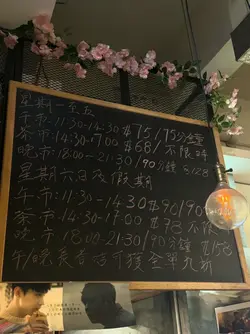 星期一至五
午市:11:30-14:30 $75/75分鐘
茶市:14:30-17:00 $68/不限時
晚市:18:00-21:30/90分鐘 $128
星期六日及假期
午市:11:30-14:30 $90/90
茶市:14:30-17:00 $78 不限
晚市:18:00-21:30/90分鐘 $158
午/晚 全單九折